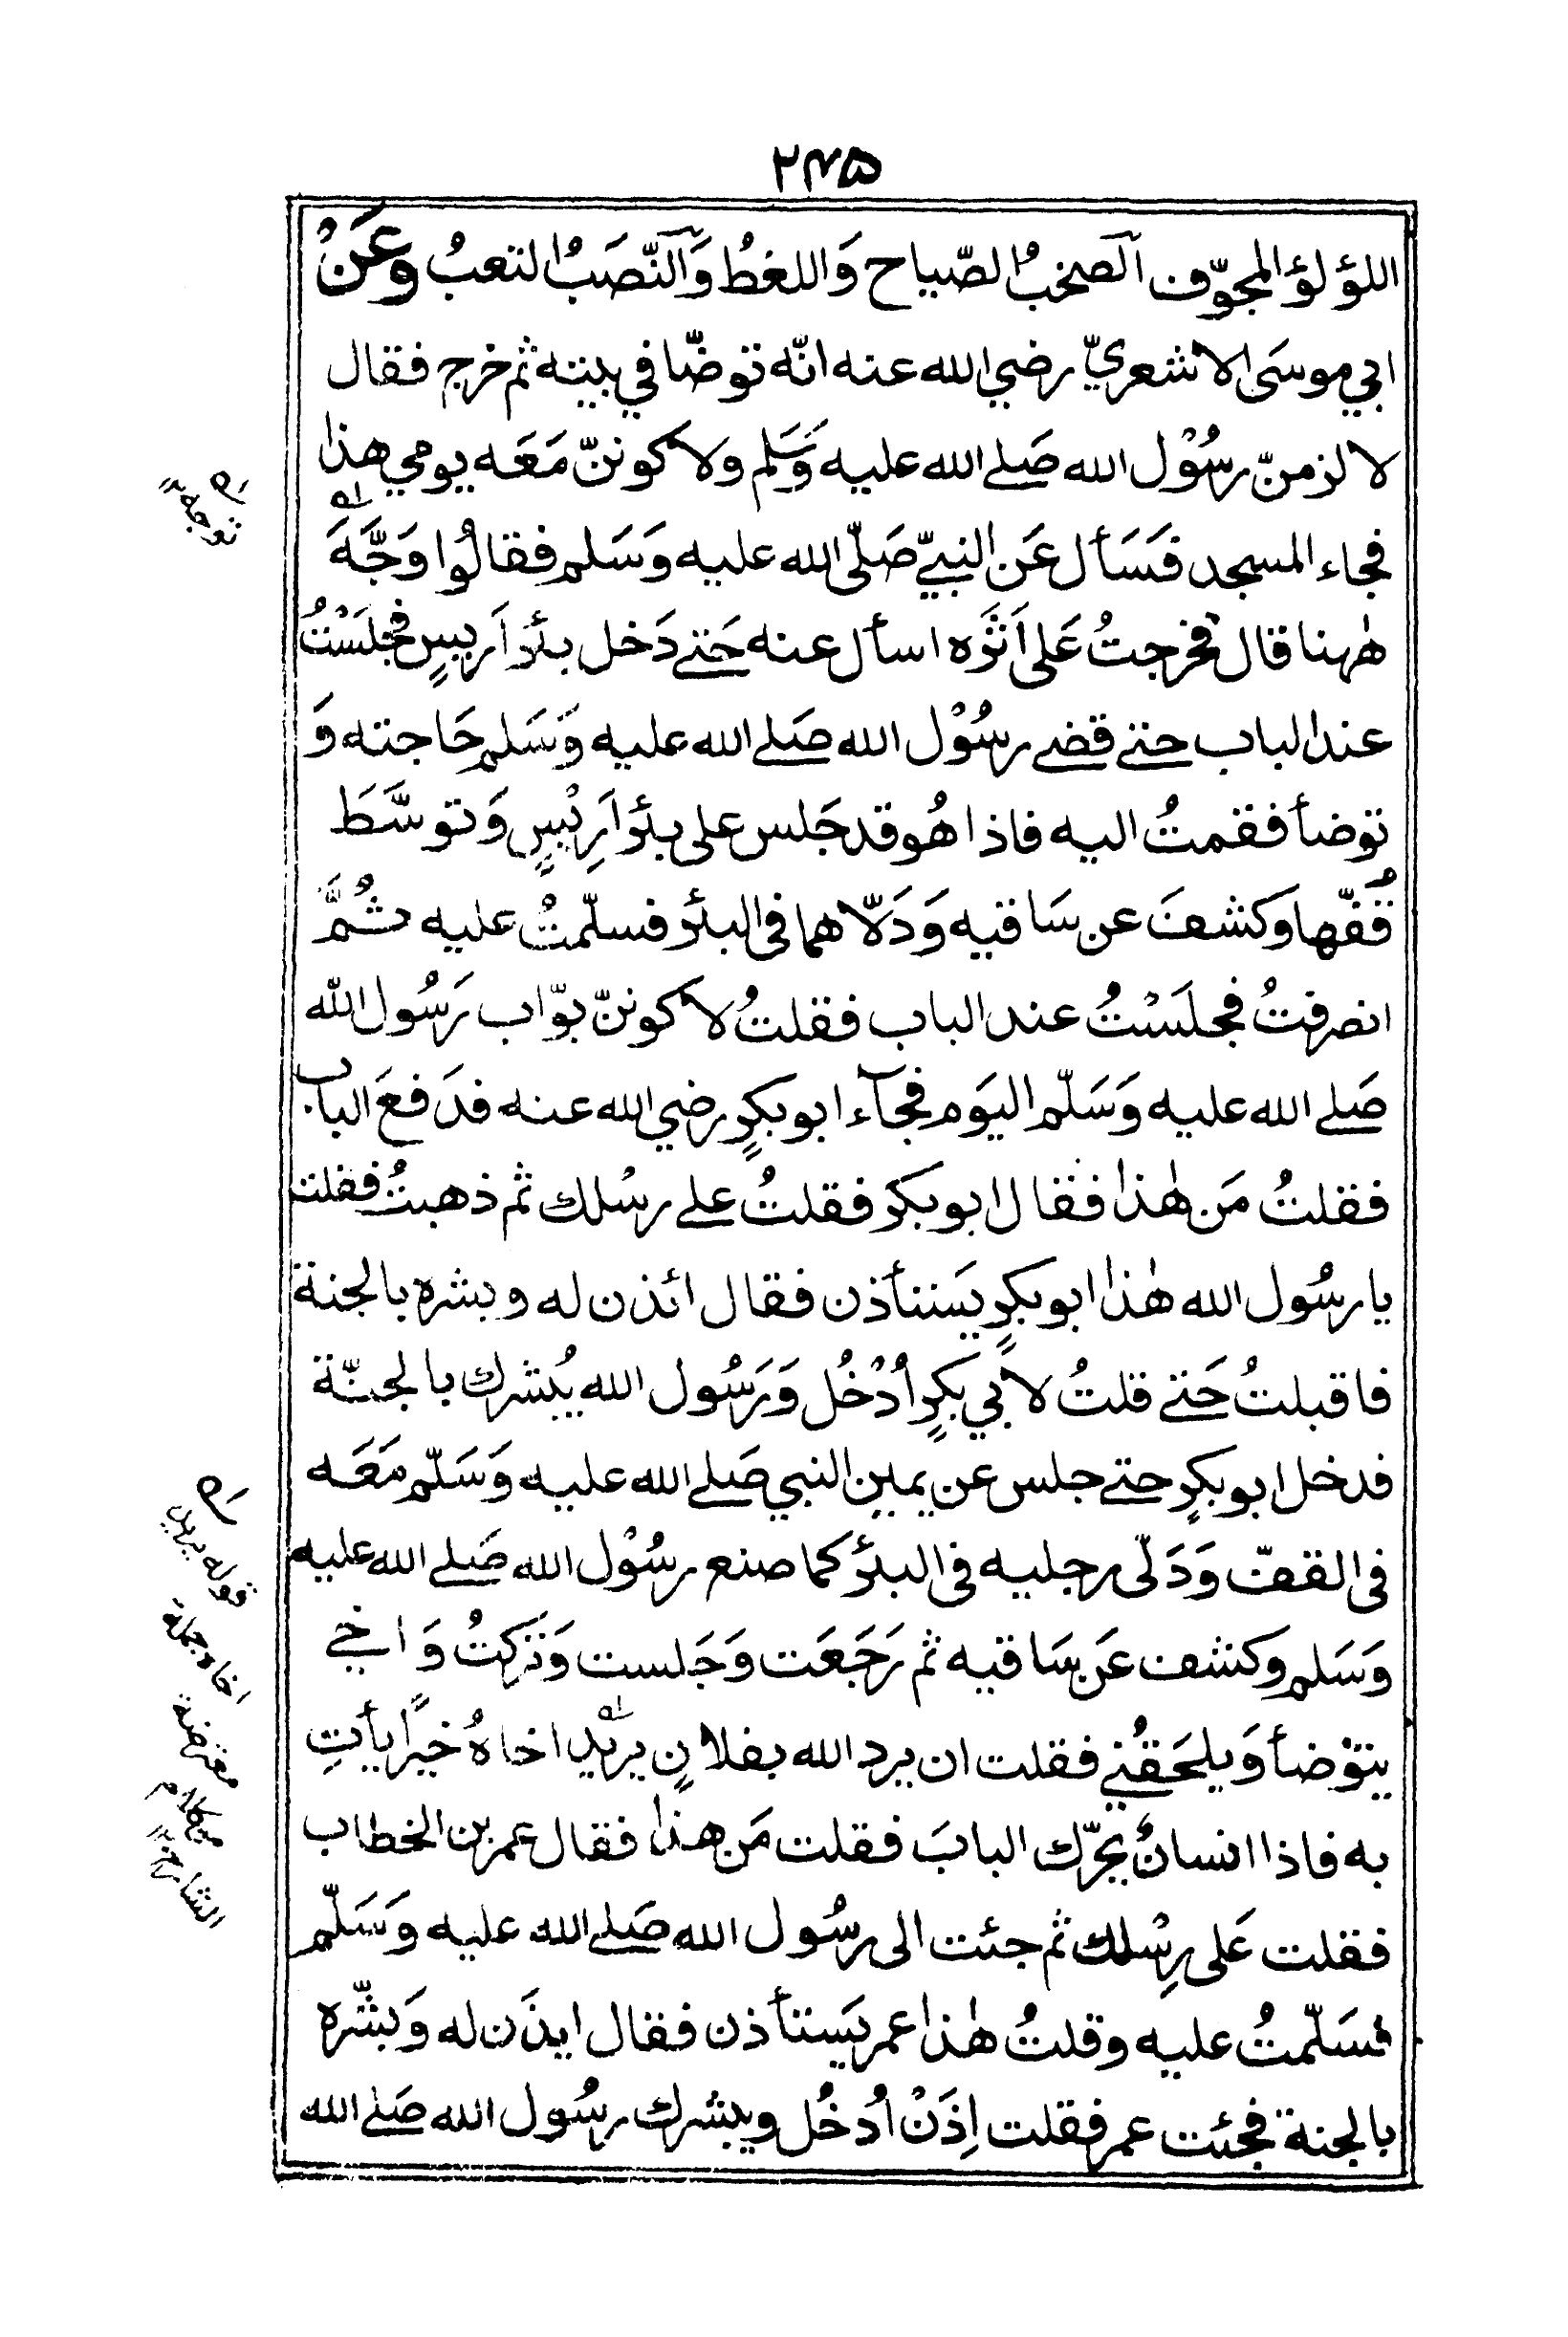 ۲۴۵
اللؤلؤ المجوّف الصخبُ الصّياح وَاللغطُ وَالنّصَبُ التعبُ وعَنْ
ابي موسَى الاشعريّ رضي الله عنه انّه توضّا في بيته ثم خرج فقال
لالزمنّ رسُوْل الله صَلے الله عليه وَسَلم ولاكوننّ مَعَه يومي هذا
فجاء المسجد فَسَأل عَن النبيّ صَلّى الله عليه وَسَلم فقالُوا وَجَّهَ
هٰهنا قال فخرجتُ عَلى اَثَره اسأل عنه حَتے دَخل بئرَ اَريسٍ فجلَسْتُ
عند الباب حتے قضے رسُوْل الله صَلے الله عليه وَسَلم حَاجته وَ
توضأ فقمتُ اليه فاذا هُو قد جَلس على بئر اَرِيْسٍ وَتوسَّطَ
قُفّها وكشفَ عن سَاقيه وَدَلّاهما فى البئر فسلّمتُ عليه ثُمَّ
انصرفتُ فجلَسْتُ عند الباب فقلتُ لاكوننّ بوّاب رَسُول الله
صَلے الله عليه وَسَلّم اليَوم فجآء ابو بكرٍ رضي الله عنه فدَفعَ الباب
فقلتُ مَن هٰذا فقال ابو بكر فقلتُ علے رسْلك ثم ذهبتُ فقلت
يا رسُول الله هٰذا ابو بكرٍ يَستأذن فقال ائذن له وبشره بالجنة
فاقبلتُ حَتے قلتُ لابي بكرٍ اُدْخُل وَرَسُول الله يُبشرك بالجنّة
فدخل ابو بكرٍ حتے جلس عن يمين النبي صَلے الله عليه وَسَلّم مَعَه
فى القفّ وَدَلّى رجليه فى البئر كما صنع رسُوْل الله صَلے الله عليه
وَسَلم وكشف عَن سَاقيه ثم رَجَعَت وَجَلست وَتَركتُ وَاخي
يتوْضأ وَيلحَقُني فقلت ان يرد الله بفلانٍ يريْد اخاهُ خيرًا يأتِ
به فاذا انسانٌ يحرّك البابَ فقلت مَن هٰذا فقال عمر بن الخطاب
فقلت عَلى رِسْلك ثم جئت الى رسُول الله صَلے الله عليه وَسَلّم
فسَلّمتُ عليه وقلتُ هٰذا عمر يَستأذن فقال ايذَن له وَبشّره
بالجنة فجئت عمر فقلت اِذَنْ اُدخُل ويبشرك رسُول الله صَلے الله
توجه
قوله يريد
اخاه جملة
معترضة
من كلام
الشارح